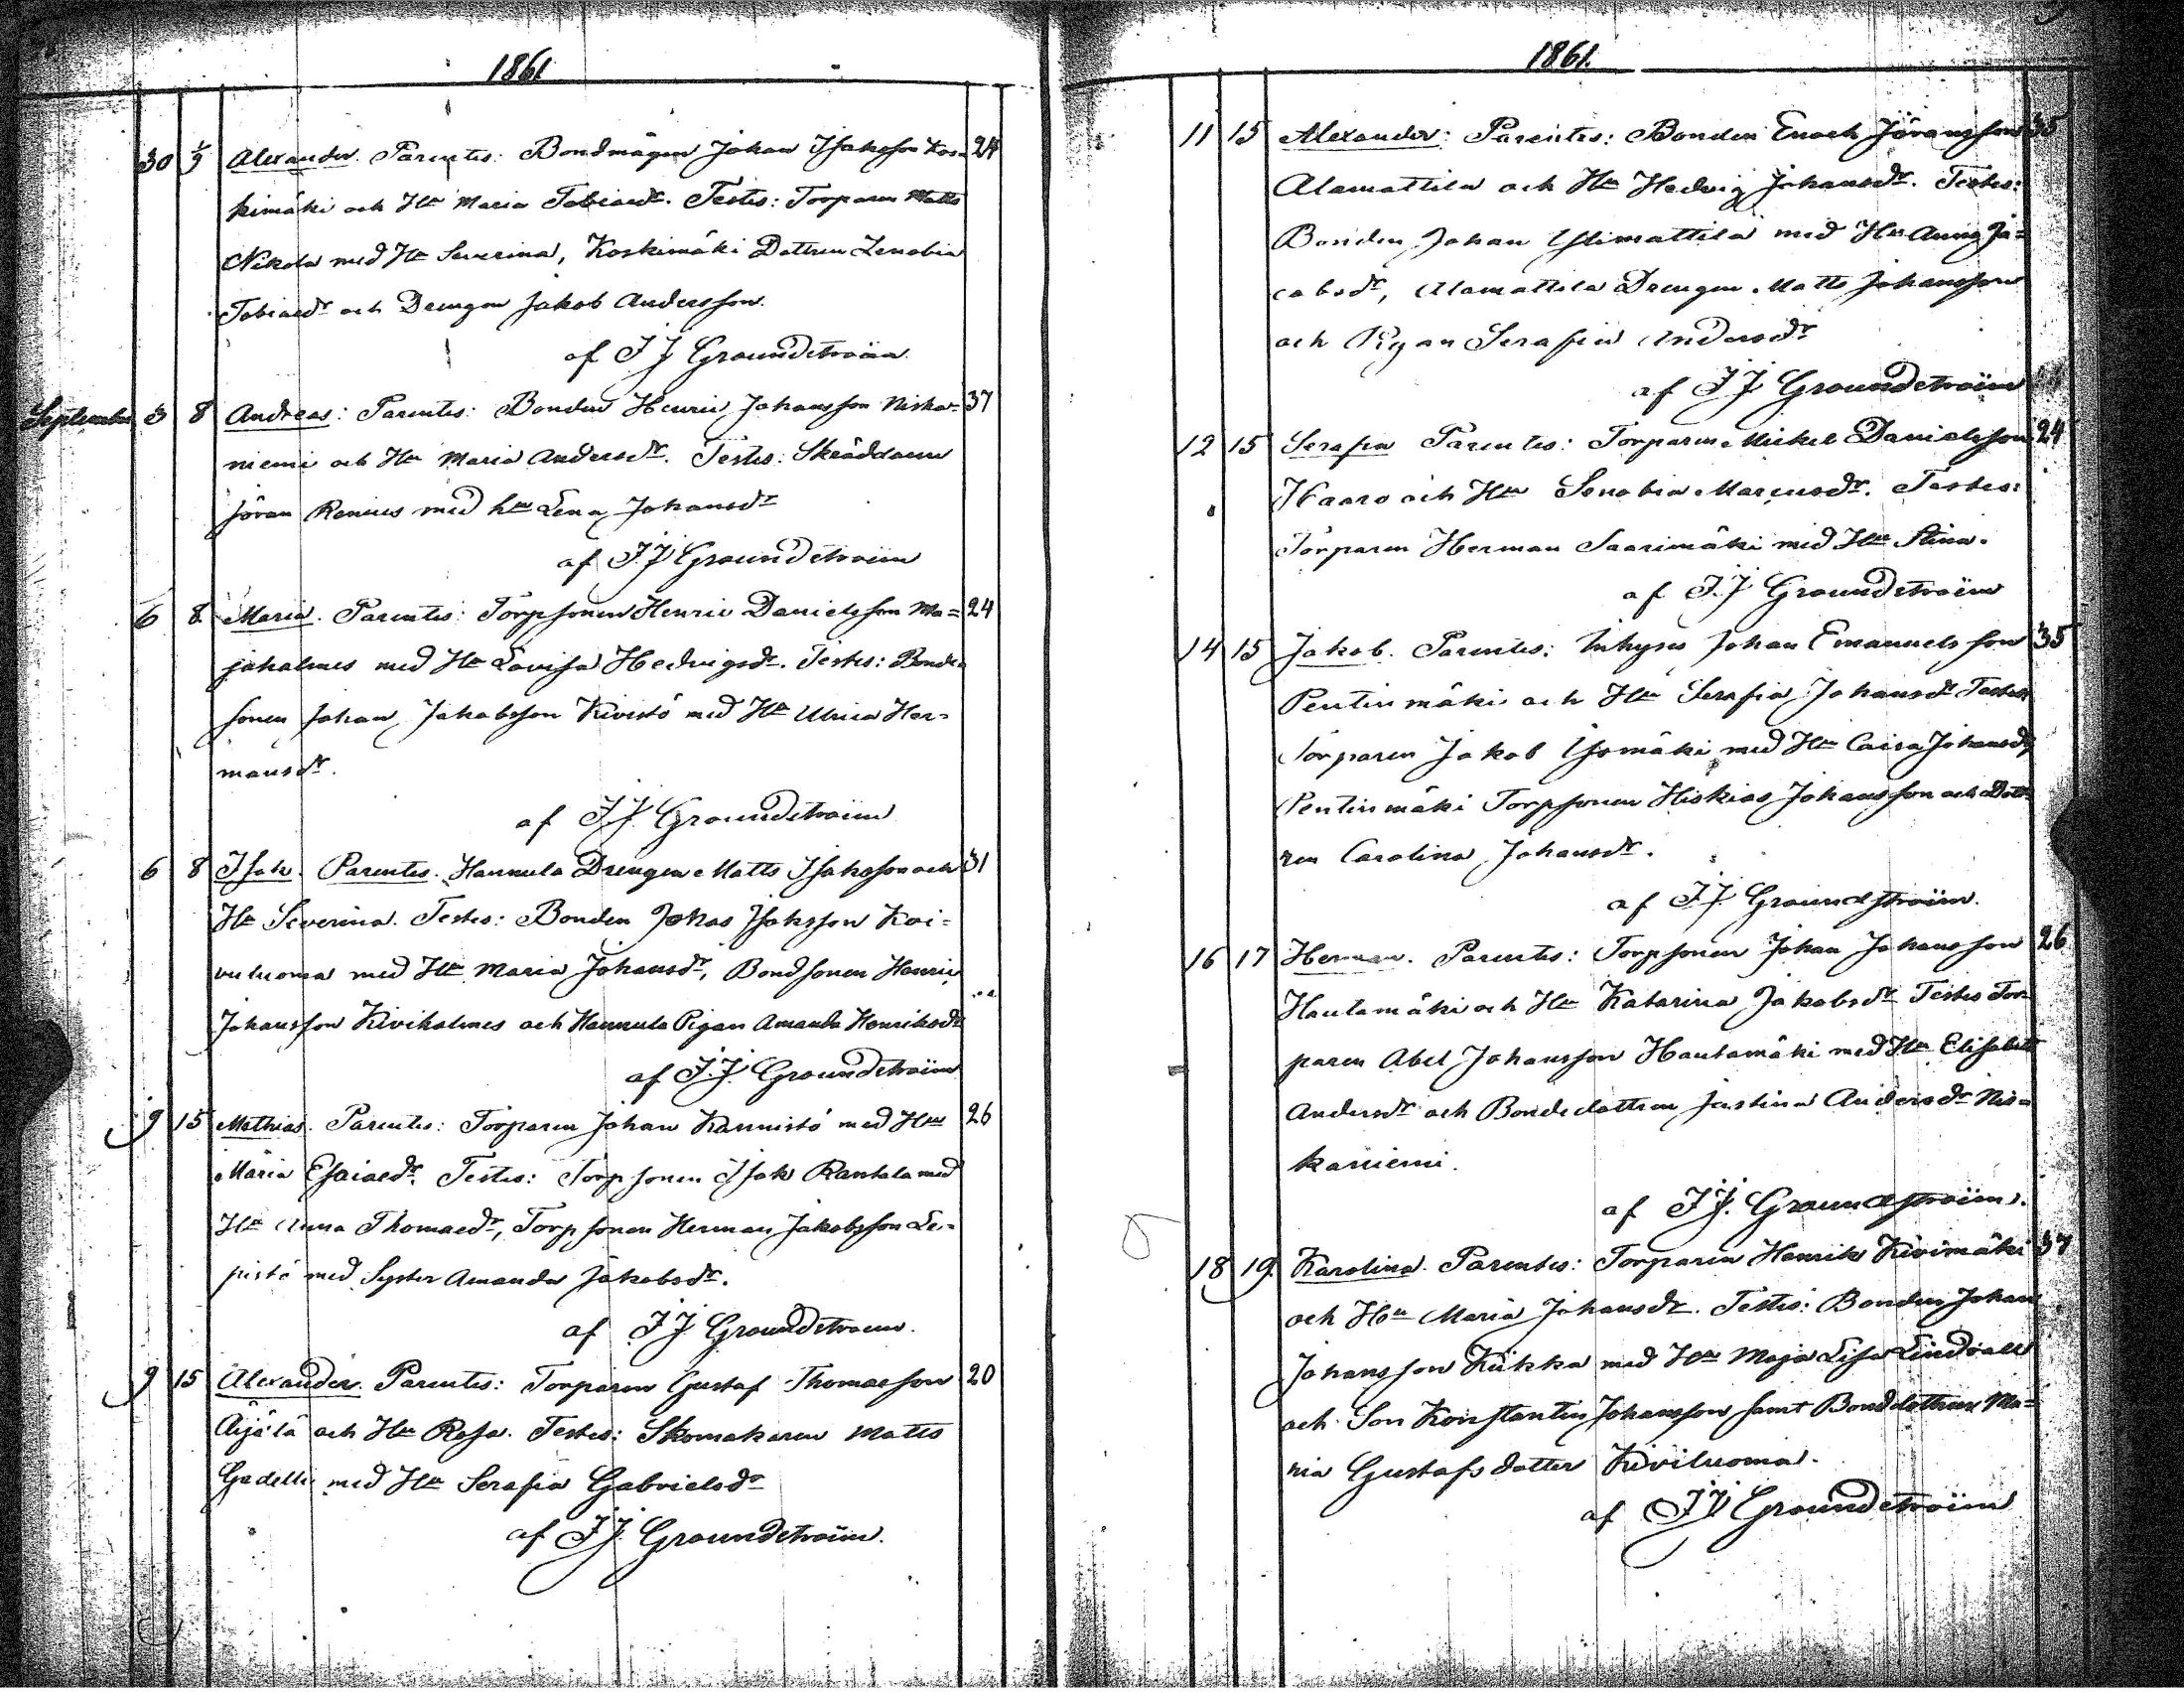 1861
30 1/9 Alexander. Parentes: Bondmågen Johan Isaksson Kos- 24
kimäki och Hu Maria Tobiaedr. Testes: Torparen Matts
Nikola med Hu Severina, Koskimäki Dottren Zenobia
Tobiaedr och Drengen Jakob Andersson.
af J J Groundstroëm.
September 3 8 Andreas: Parentes: Bonden Henric Johansson Niska- 37
niemi och Hu Maria Andersdr. Testes: Skräddaren
Jöran Renius med hu Lena Johansdr
af J.J Groundstroëm
6 8 Maria. Parentes: Torpsonen Henric Danielsson Ma= 24
jahalmes med Hu Lovisa Hedvigsdr. Testes: Bonde-
sonen Johan Jakobsson Kivistö med Hu Ulrica Her-
mansdr.
af J.J. Groundstroëm
6 8 Isak. Parentes. Hannula Drengen Matts Isaksson och 31
Hu Severina. Testes: Bonden Johas Isaksson Koi=
vuluoma med Hu Maria Johansdr, Bondsonen Henric
Johansson Kivihalmes och Hannula Pigan Amanda Henriksdr
af J.J. Groundstroëm
9 15 Mathias. Parentes: Torparen Johan Kannistö med Hu 26
Maria Esaiaedr. Testes: Torpsonen Isak Rantala med
Hu Anna Thomaedr, Torpsonen Herman Jakobsson Le-
pistö med Syster Amanda Jakobsdr.
af J J Groundstroem.
9 15 Alexander. Parentes: Torparen Gustaf Thomaesson 20
Äijälä och Hu Rosa. Testes: Skomakaren Matts
Gadelli med Hu Serafia Gabrielsdr
af J J. Groundstroëm.
1861.
11 15 Alexander: Parentes: Bonden Enoch Jöransson 35
Alamattila och Hu Hedvig Johansdr. Testes:
Bonden Johan Ylimattila med Hu Anna Ja=
cobsdr, Alamattila Drengen Matts Johansson
och Pigan Serafia Andersdr
af J J Groundstroëm
12 15 Serafia Parentes: Torparen Mickel Danielsson 24
Haaro och Hu Senobia Marcusdr. Testes:
Torparen Herman Saarimäki med Hu Stina.
af J.J Groundstroëm
14 15 Jakob. Parentes: Inhyses Johan Emanuelsson 35
Pentinmäki och Hu Serafia Johansdr Testes
Torparen Jakob Isomäki med Hu Caisa Johansdr,
Pentinmäki Torpsonen Hiskias Johansson och Dott-
ren Carolina Johansdr.
af J J. Groundstroëm.
16 17 Herman. Parentes: Torpsonen Johan Johansson 26
Hautamäki och Hu Katarina Jakobsdr Testes Tor-
paren Abel Johansson Hautamäki med Hu Elisabeth
Andersdr och Bondedottren Justina Andersdr Nis=
kaniemi.
af J J. Groundstroëm.
18 19. Karolina. Parentes: Torparen Henrik Kivimäki 37
och Hu Maria Johansdr. Testes: Bonden Johan
Johansson Kiikka med Hu Maja Lisa Lindvall
och Son Konstantin Johansson samt Bonddottren Ma=
ria Gustafsdotter Kiviluoma.
af J J Groundstroëm